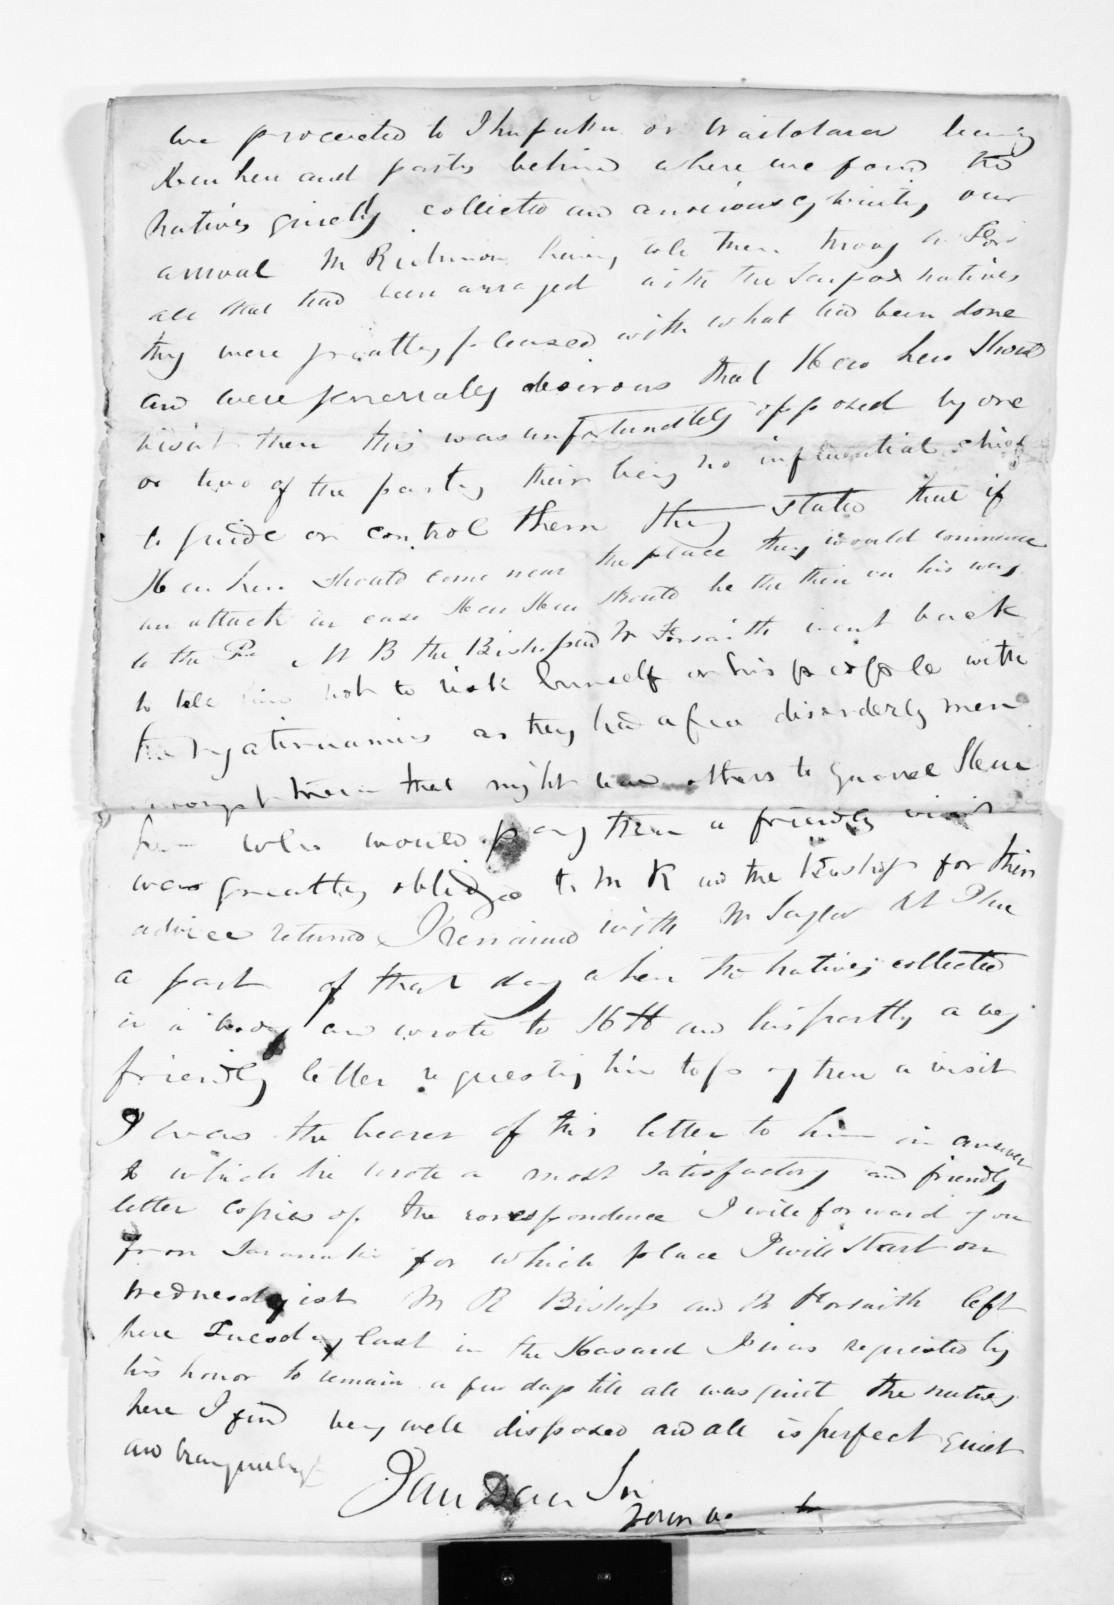 we proceeded to Ihupuku or Waitotara leaving
Heu heu and party behind where we found the
natives quietly collected and anxiously waiting our
arrival Mr Richmond having told them throug Mr Fors
all that had been arraged with the natives
they were greatley pleased with what had been done
and were generraley desirous that Heu heu Should
visit them this was unfortundtley opposed by one
or two of the partey their being no influential chief
to guide or control them they stated that if
Heu heu should come near the place they would commence
an attack in case Heu Heu should be then on his way
to the Pa M R the Bishop and Mr Forsaith went back
to tell him not to risk himself or his people with
the Ngatiruanuis as they had a few disorderly men
amongst them that might lead others to quarrel Heu
heu who would pay them a friendly visit
was greatley obliged to M R and the Bishop for their
advice returned I remained with Mr Taylor at Phu
a part of that day when the natives collected
in a body and wrote to H H and his partly a very
friendly letter requesting him to pay them a visit
I was the bearer of this letter to him in answer
to which he wrote a most satisfactory and friendly
letter copies of the correspondence I will forward you
from Taranaki for which place I will start on
Wednesday ist M R Bishop and Mr Forsaith left
here Tuesday last in the Hasard I was requested by
his honor to remain a few days till all was quiet the natives
here I find very well disposed and all is perfect quiet
and tranquility
I am Dear Sir